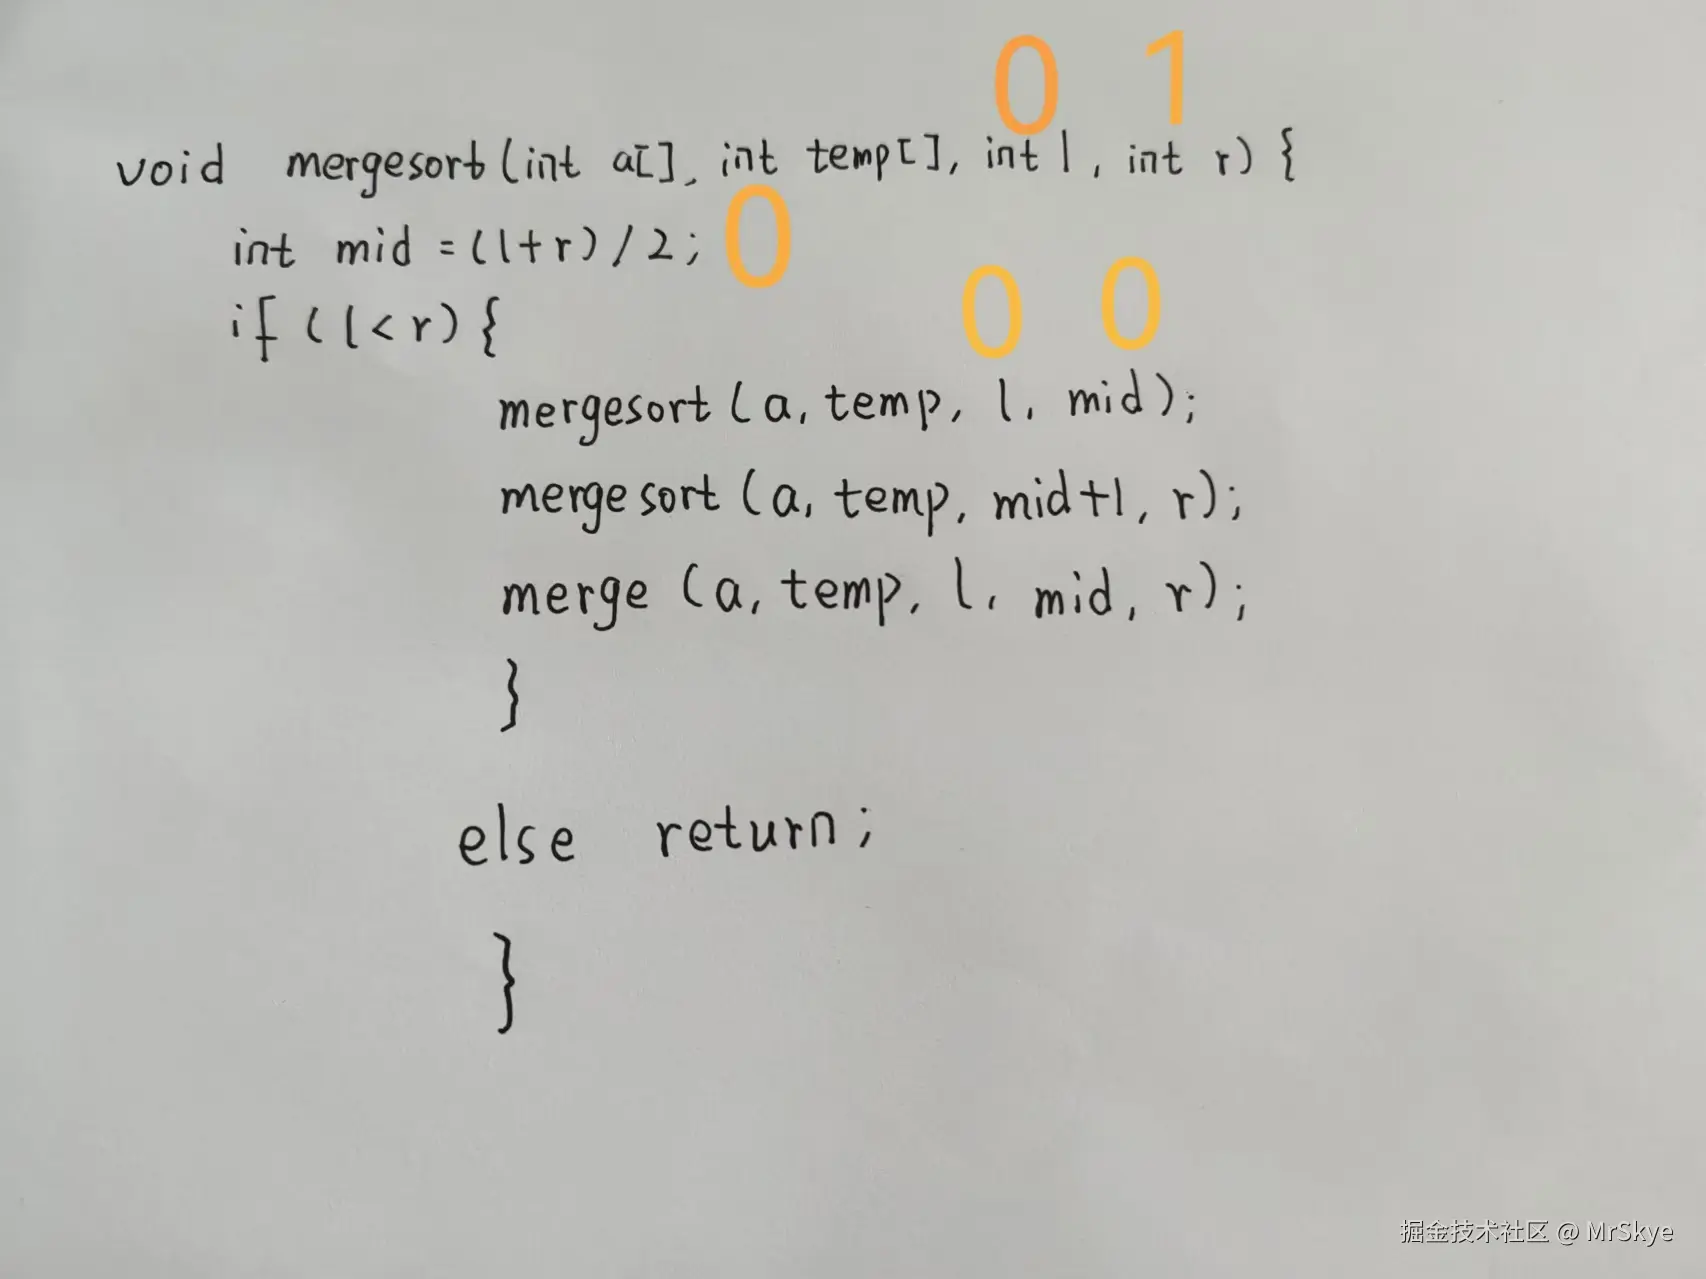 0 1
void mergesort(int a[], int temp[], int l, int r) {
int mid = (l+r)/2; 0
0 0
if (l<r) {
mergesort(a, temp, l, mid);
mergesort(a, temp, mid+1, r);
merge(a, temp, l, mid, r);
}
else return;
}
掘金技术社区 @ MrSkye